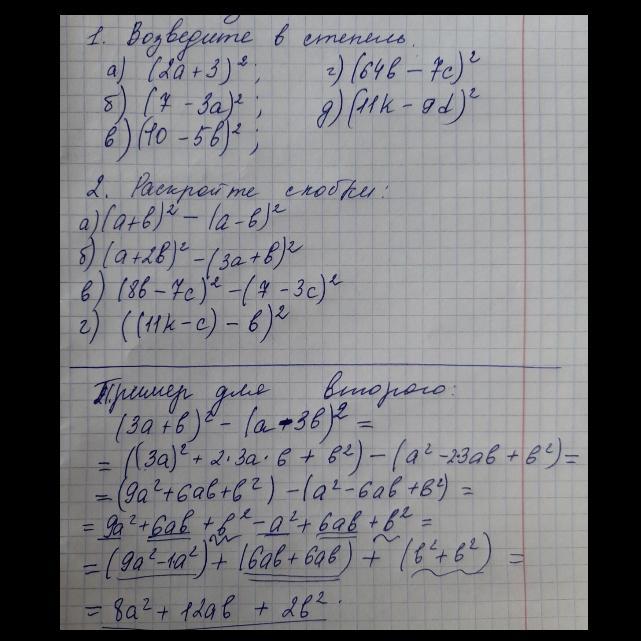 1. Возведите в степень.
а) (2a+3)²; г) (64b − 7c)²
б) (7 − 3a)²; д) (11k − 9d)²
в) (10 − 5b)²;
2. Раскройте скобки:
а) (a+b)² − (a−b)²
б) (a+2b)² − (3a+b)²
в) (8b − 7c)² − (7 − 3c)²
г) ((11k − c) − b)²
Пример для второго:
(3a+b)² − (a−3b)² =
= ((3a)² + 2·3a·b + b²) − (a² − 2·3ab + b²) =
= (9a² + 6ab + b²) − (a² − 6ab + b²) =
= 9a² + 6ab + b² − a² + 6ab + b² =
= (9a² − 1a²) + (6ab + 6ab) + (b² + b²) =
= 8a² + 12ab + 2b².